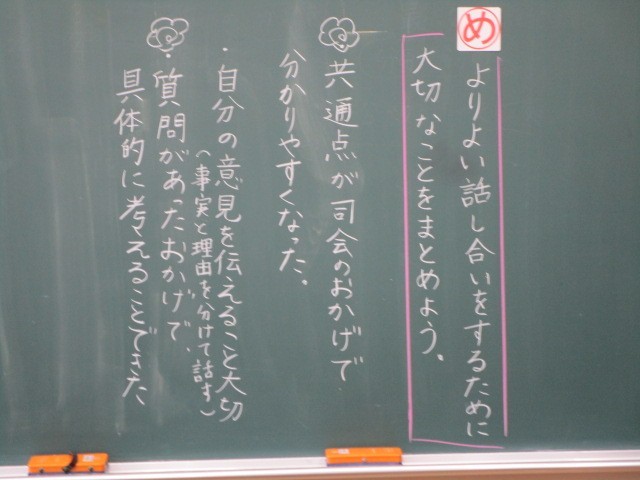 め
よりよい話し合いをするために
大切なことをまとめよう。
共通点が司会のおかげで
分かりやすくなった。
・自分の意見を伝えること大切
(事実と理由を分けて話す)
・質問があったおかげで、
具体的に考えることできた